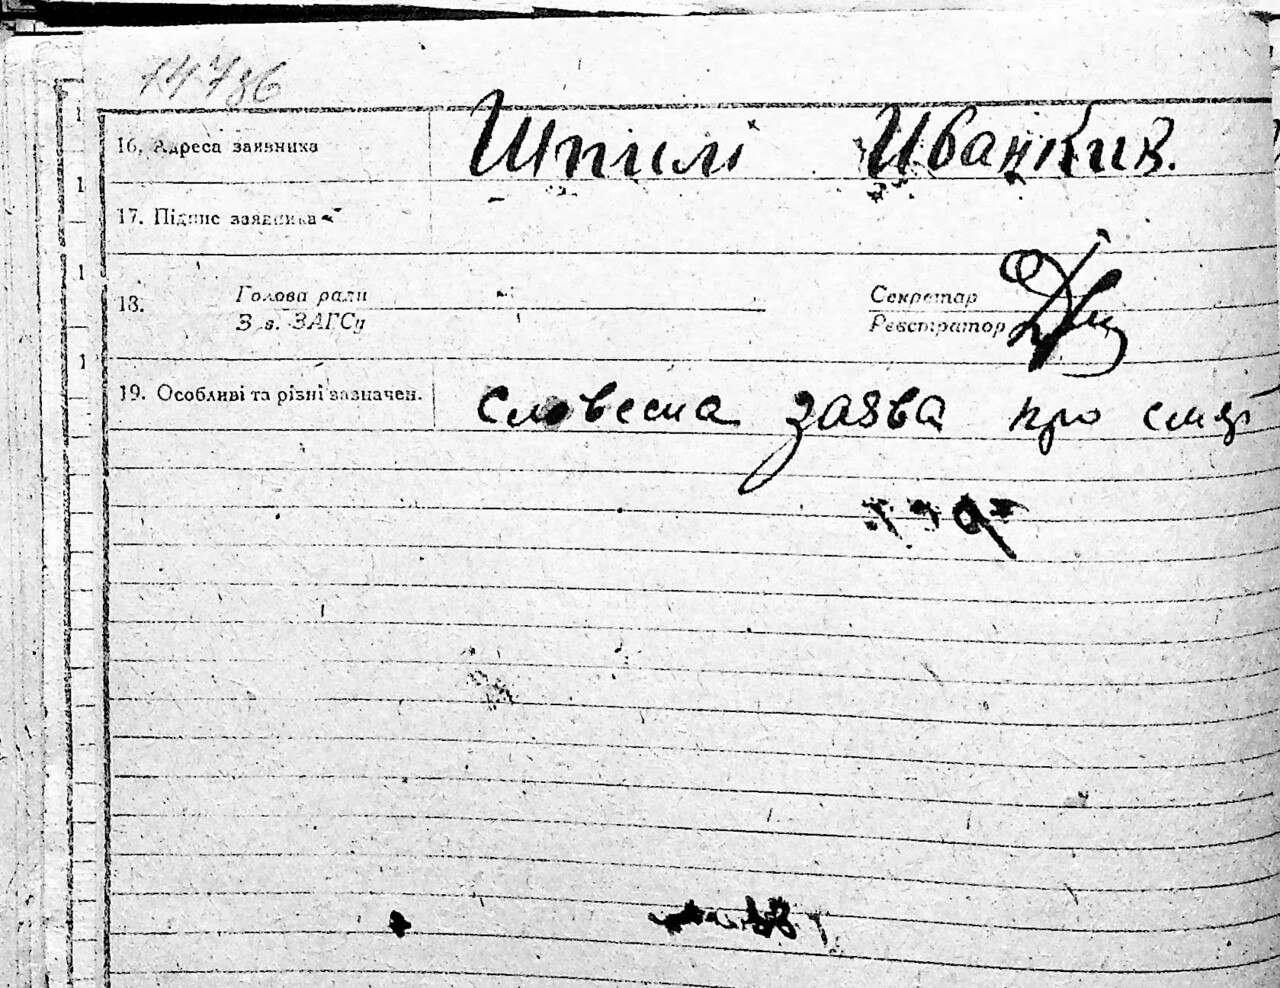 14786
16. Адреса заявника Шпилі Иванкив.
17. Підпис заявника
18. Голова ради Секретар
Зав. ЗАГСу Реєстратор
19. Особливі та різні зазначен. словесна заява про смер